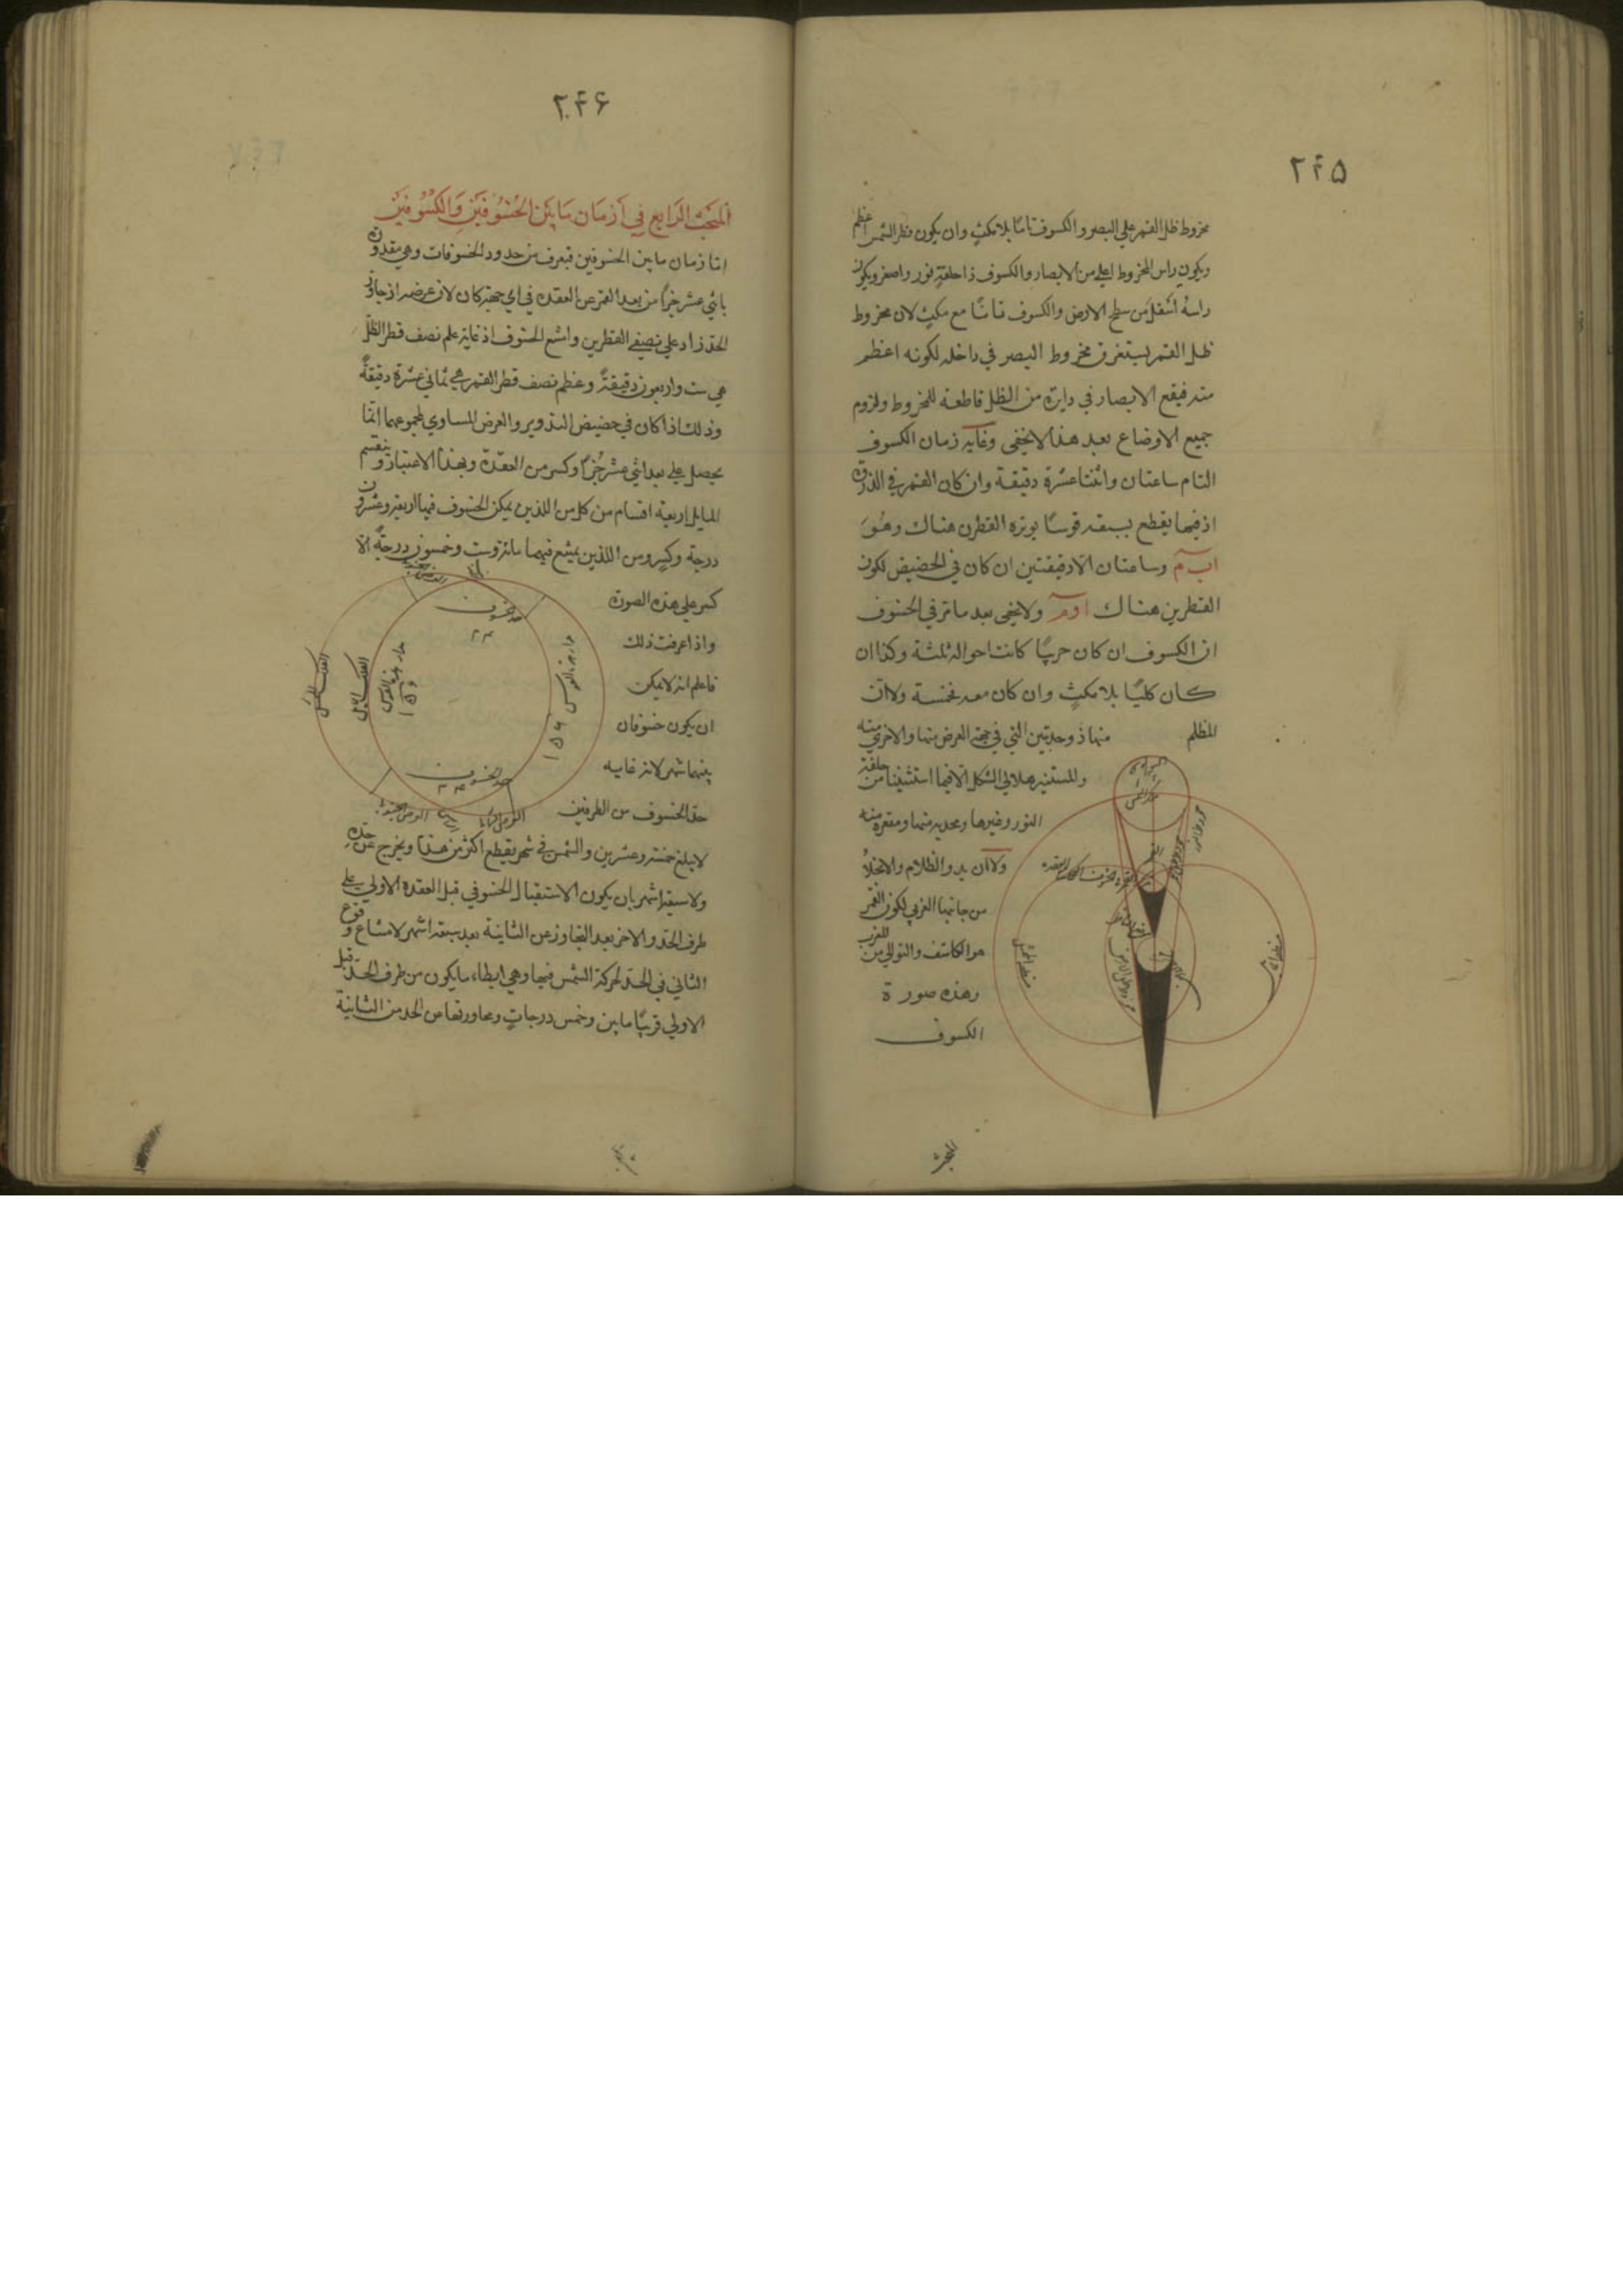 ٢٤٥
مخروط ظل القمر على البصر والكسوف تاما بلا مكث وان يكون قطر الشمس اعظم
ويكون راس المخروط اعلى من الابصار والكسوف ذا حلقة نور واصغر ويكون
راسه اسفل من سطح الارض والكسوف تاما مع مكث لان مخروط
ظل القمر يستغرق مخروط البصر في داخله لكونه اعظم
منه فيقع الابصار في دايرة من الظل قاطعة للمخروط ولزوم
جميع الاوضاع بعد هذا لا يخفى وغاية زمان الكسوف
التام ساعتان واثنتا عشرة دقيقة وان كان القمر في الذروة
اذ فيها يقطع بسبقه قوسا يوتره القطرن هناك وهو
اب م وساعتان الا دقيقتين ان كان في الحضيض لكون
القطرين هناك ولا يخفى بعد ما مر في الخسوف
ان الكسوف ان كان جزييا كانت احواله ثلثة وكذا ان
كان كليا بلا مكث وان كان معه فخمسة ولا ان
المظلم منها ذو حدبتين التي في جهة العرض منها والاخرى منه
والمستنير هلالي الشكل الا فيما استثنينا من حلقة
النور وغيرها ومحدبه منها ومقعره منه
ولا ان بدو الظلام والانجلا
من جانبها الغربي لكون القمر
هو الكاسف والتوالي من للغرب
وهذه صورة
الكسوف
مركز الشمس
المبحث
٢٤٦
المبحث الرابع في ازمان ما بين الخسوفين والكسوفين
اما زمان ما بين الخسوفين فيعرف من حدود الخسوفات وهي مقدرة
باثني عشر جزءا من بعد القمر عن العقدة في اي جهة كان لان عرضه اذ جاوز
الحد زاد على نصفي القطرين وامتنع الخسوف اذ غاية علم نصف قطر الظل
هي ست واربعون دقيقة وعظم نصف قطر القمر هي ثماني عشرة دقيقة
وذلك اذا كان في حضيض التدوير والعرض المساوي لمجموعهما انما
يحصل على بعد اثني عشر جزءا وكسر من العقدة وبهذا الاعتبار ينقسم
المايل اربعة اقسام من كل من اللذين يمكن الخسوف فيها اربعة وعشرون
درجة وكسر ومن اللذين يمتنع فيهما مائة وست وخمسون درجة الا
كسر على هذه الصورة
واذا عرفت ذلك
فاعلم انه لا يمكن
ان يكون خسوفان
بينهما شهر لانه غايته
حد الخسوف من الطرفين
لا يبلغ خمسة وعشرين والشمس في شهر يقطع اكثر من هذا ويخرج عن حده
ولا سبعة اشهر بان يكون الاستقبال الخسوفي قبل العقدة الاولى على
طرف الحد والاخر بعد التجاوز عن الثانية بعد سبعة اشهر لامتناع وقوع
الثاني في الحد لحركة الشمس فيها وهي ابطاء ما يكون من طرف الحد قبل
الاولى قريبا مايين وخمس درجات ومجاورتها من الحد من الثانية
حد الخسوف
٢٤
حد الخسوف
٢٤
١٥٦
١٥٦